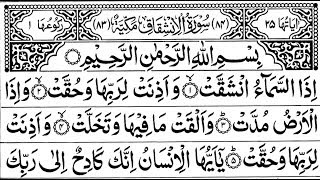 اٰیَاتُهَا ۲۵ (۸۴) سُوْرَةُ الْاِنْشِقَاقِ مَكِّيَّةٌ (۸۳) رُكُوْعُهَا ۱
بِسْمِ اللّٰهِ الرَّحْمٰنِ الرَّحِيْمِ
اِذَا السَّمَآءُ انْشَقَّتْ ۙ۱ وَاَذِنَتْ لِرَبِّهَا وَحُقَّتْ ۙ۲ وَاِذَا
الْاَرْضُ مُدَّتْ ۙ۳ وَاَلْقَتْ مَا فِيْهَا وَتَخَلَّتْ ۙ۴ وَاَذِنَتْ
لِرَبِّهَا وَحُقَّتْ ؕ۵ يٰۤاَيُّهَا الْاِنْسَانُ اِنَّكَ كَادِحٌ اِلٰى رَبِّكَ